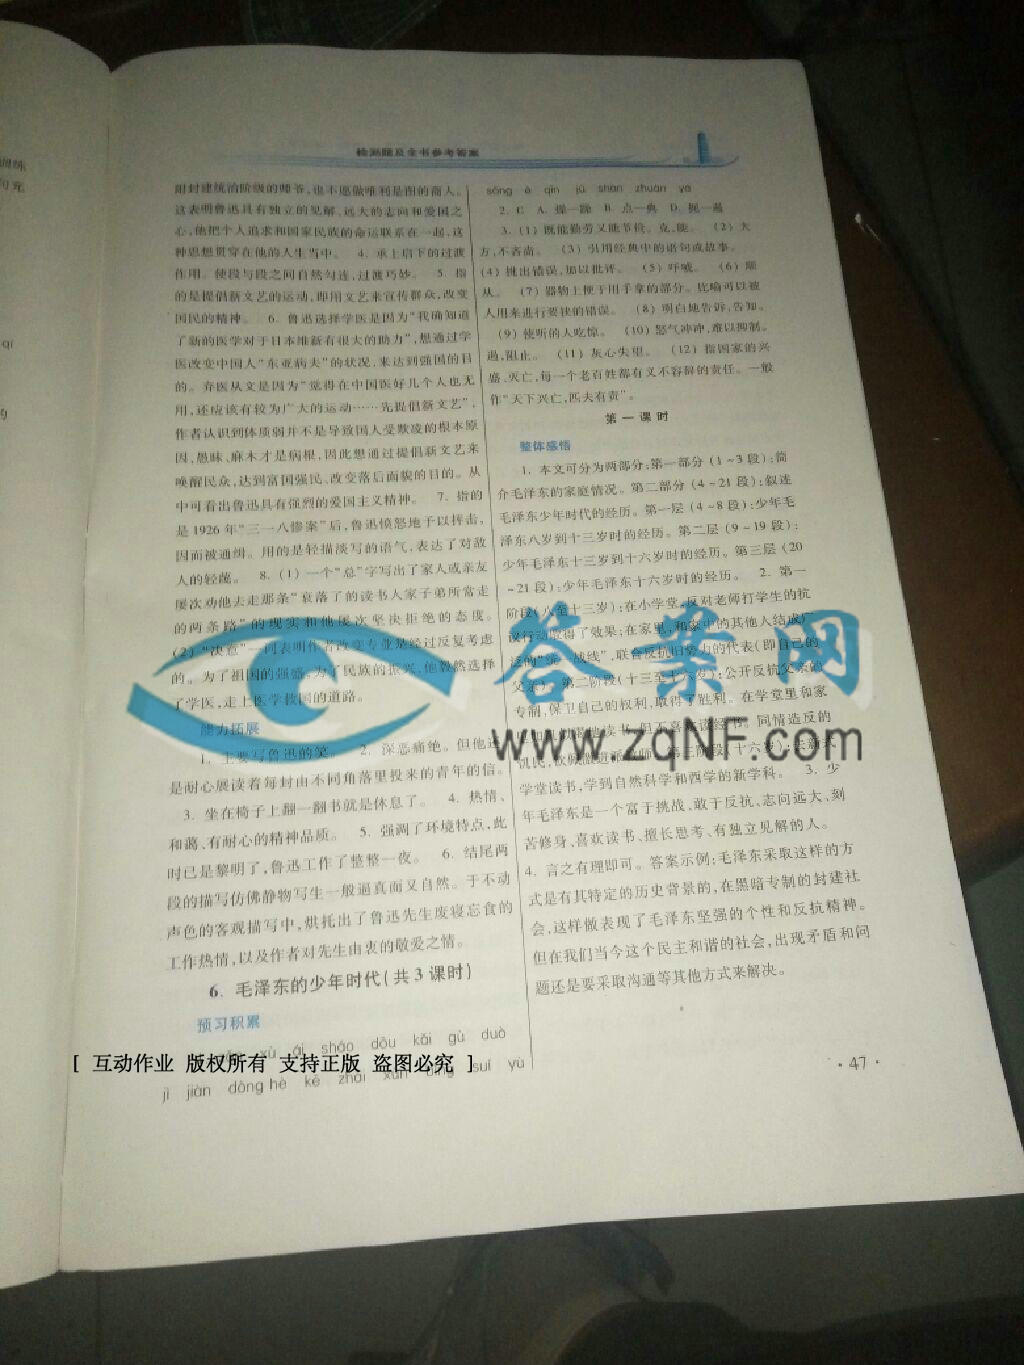 检测题及全书参考答案
附封建统治阶级的师爷,也不愿做唯利是图的商人。
这表明鲁迅具有独立的见解、远大的志向和爱国之
心,他把个人追求和国家民族的命运联系在一起,这
种思想贯穿在他的人生当中。 4. 承上启下的过渡
作用。使段与段之间自然勾连,过渡巧妙。 5. 指
的是提倡新文艺的运动,即用文艺来宣传群众,改变
国民的精神。 6. 鲁迅选择学医是因为“我确知道
了新的医学对于日本维新有很大的助力”,想通过学
医改变中国人“东亚病夫”的状况,来达到强国的目
的。弃医从文是因为“觉得在中国医好几个人也无
用,还应该有较为广大的运动……先提倡新文艺”,
作者认识到体质弱并不是导致国人受欺凌的根本原
因,愚昧、麻木才是病根,因此想通过提倡新文艺来
唤醒民众,达到富国强民、改变落后面貌的目的。从
中可看出鲁迅具有强烈的爱国主义精神。 7. 指的
是1926年“三一八惨案”后,鲁迅愤怒地予以抨击,
因而被通缉。用的是轻描淡写的语气,表达了对敌
人的轻蔑。 8. (1) 一个“总”字写出了家人或亲友
屡次劝他去走那条“衰落了的读书人家子弟所常走
的两条路”的现实和他屡次坚决拒绝的态度。
(2) “决意”一词表明作者改变专业是经过反复考虑
的。为了祖国的强盛,为了民族的振兴,他毅然选择
了学医,走上医学救国的道路。
能力拓展
1. 主要写鲁迅的笑。 2. 深恶痛绝。但他还
是耐心展读着每封由不同角落里投来的青年的信。
3. 坐在椅子上翻一翻书就是休息了。 4. 热情、
和蔼、有耐心的精神品质。 5. 强调了环境特点,此
时已是黎明了,鲁迅工作了整整一夜。 6. 结尾两
段的描写仿佛静物写生一般逼真而又自然。于不动
声色的客观描写中,烘托出了鲁迅先生废寝忘食的
工作热情,以及作者对先生由衷的敬爱之情。
6. 毛泽东的少年时代(共3课时)
预习积累
xù shāo dǒu kǎi gù duò
jì jiàn dōng hè kè suī yù
sǒng è qín jǔ shàn zhuàn yè
2. C A. 操—躁 B. 点—典 D. 
3. (1) 既能勤劳又能节俭。克,能。 (2) 大
方,不吝啬。 (3) 引用经典中的语句或故事。
(4) 挑出错误,加以批评。 (5) 呼喊。 (6) 顺
从。 (7) 器物上便于用手拿的部分。比喻可以被
人用来进行要挟的错误。 (8) 明白地告诉,告知。
(9) 使听的人吃惊。 (10) 怒气冲冲,难以抑制。
遏,阻止。 (11) 灰心失望。 (12) 指国家的兴
盛、灭亡,每一个老百姓都有义不容辞的责任。一般
作“天下兴亡,匹夫有责”。
第一课时
整体感悟
1. 本文可分为两部分:第一部分(1~3段):简
介毛泽东的家庭情况。第二部分(4~21段):叙述
毛泽东少年时代的经历。第一层(4~8段):少年毛
泽东八岁到十三岁时的经历。第二层(9~19段):
少年毛泽东十三岁到十六岁时的经历。第三层(20
~21段):少年毛泽东十六岁时的经历。 2. 第一
阶段(八至十三岁):在小学堂,反对老师打学生的抗
议行动取得了效果;在家里,和家中的其他人结成广
泛的“统一战线”,联合反抗旧势力的代表(即自己的
父亲)。第二阶段(十三至十六岁):公开反抗父亲的
专制,保卫自己的权利,取得了胜利。在学堂里和家
读书,但不喜欢读经书。同情造反的
饥民,第三阶段(十六岁):去新式
学堂读书,学到自然科学和西学的新学科。 3. 少
年毛泽东是一个富于挑战、敢于反抗、志向远大、刻
苦修身,喜欢读书、擅长思考、有独立见解的人。
4. 言之有理即可。答案示例:毛泽东采取这样的方
式是有其特定的历史背景的,在黑暗专制的封建社
会,这样做表现了毛泽东坚强的个性和反抗精神。
但在我们当今这个民主和谐的社会,出现矛盾和问
题还是要采取沟通等其他方式来解决。
· 47 ·
答案网
www.zqNF.com
[ 互动作业 版权所有 支持正版 盗图必究 ]